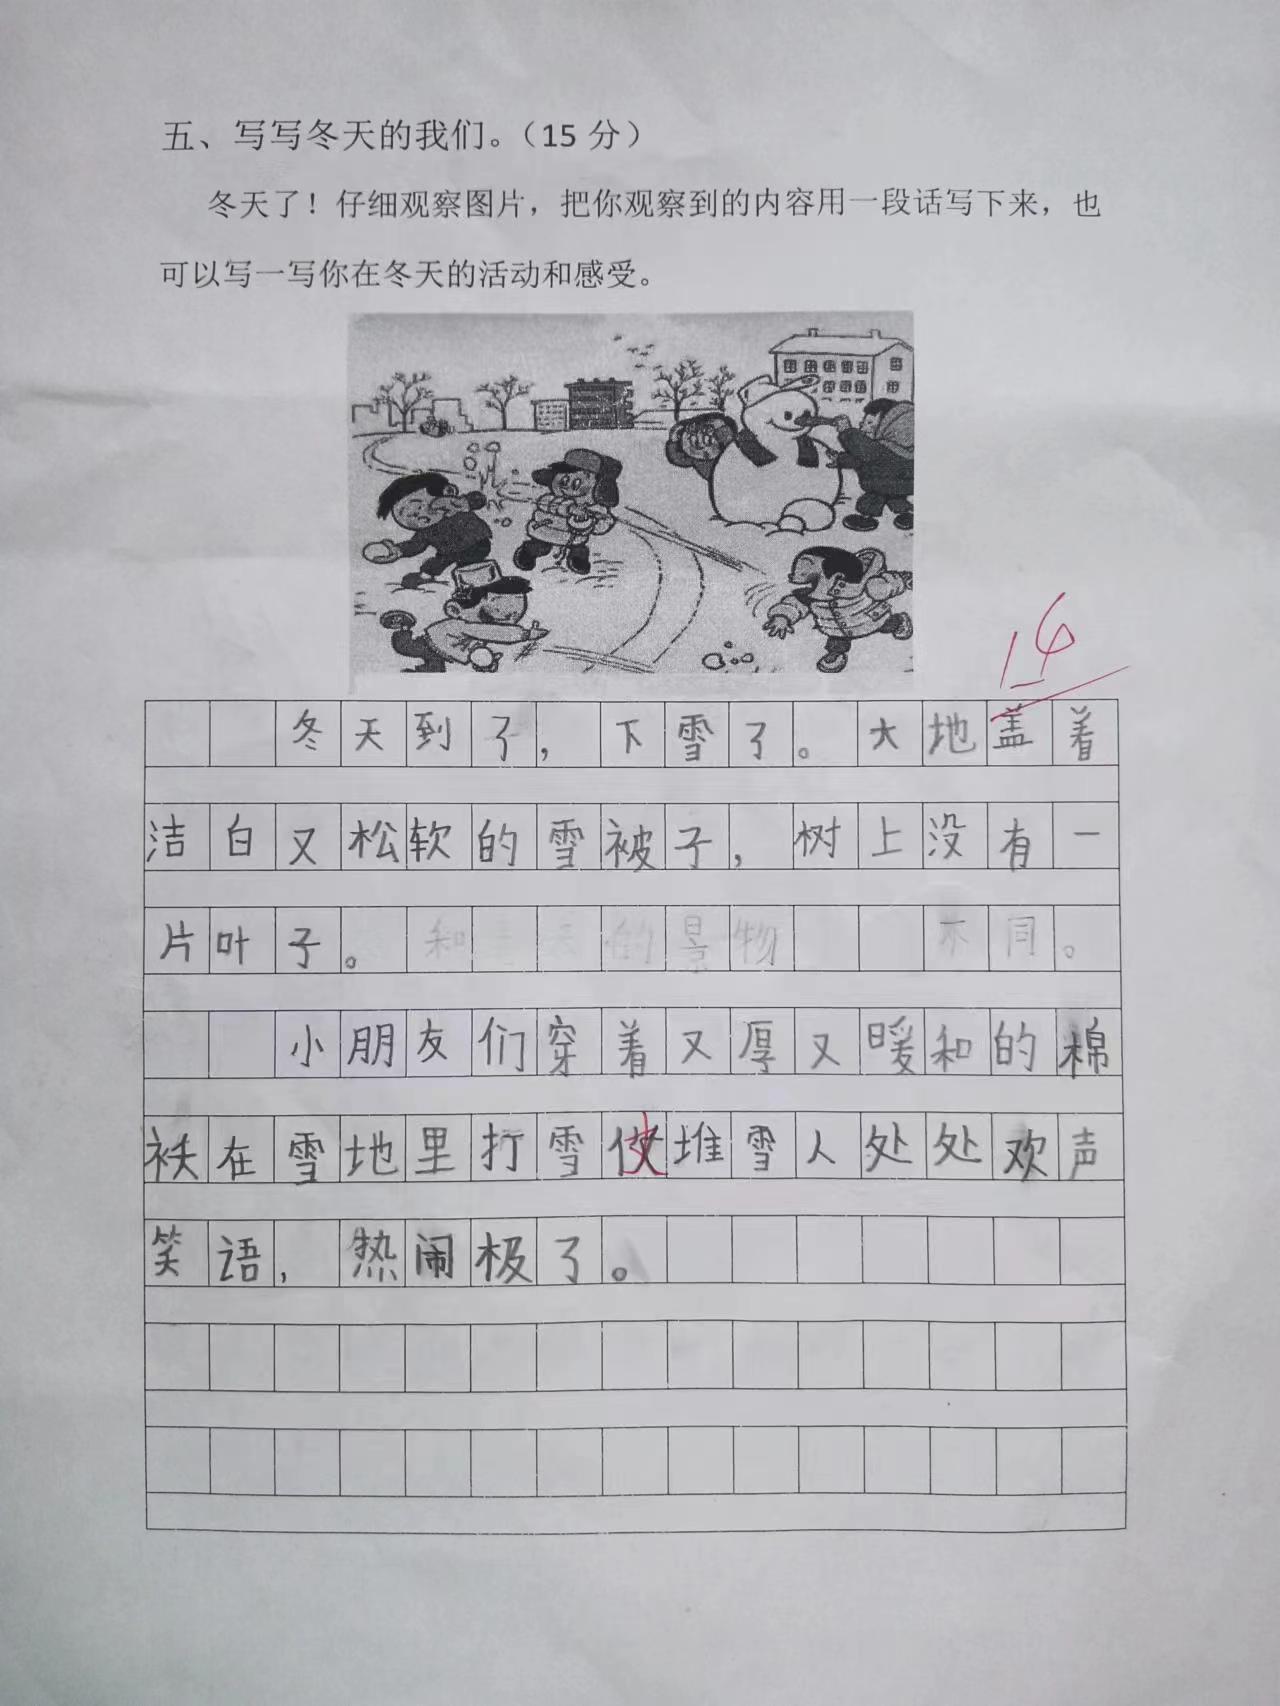 五、写写冬天的我们。（15 分）
冬天了！仔细观察图片，把你观察到的内容用一段话写下来，也
可以写一写你在冬天的活动和感受。
14
冬天到了，下雪了。大地盖着
洁白又松软的雪被子，树上没有一
片叶子。和 的景物 不同。
小朋友们穿着又厚又暖和的棉
袄在雪地里打雪仗堆雪人处处欢声
笑语，热闹极了。